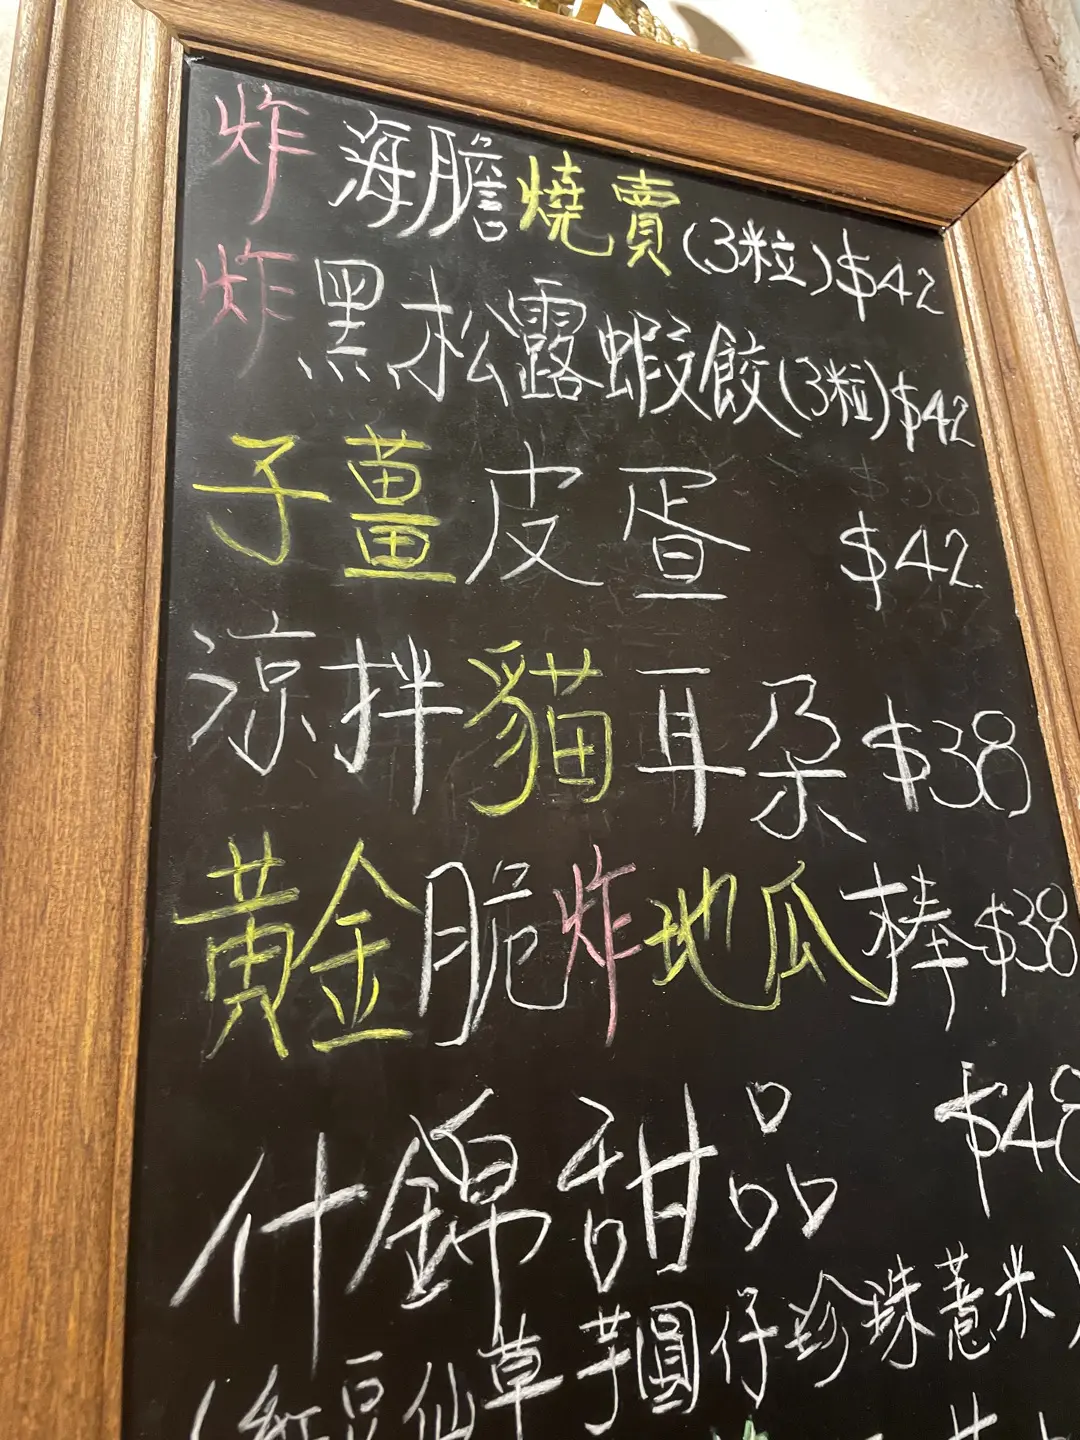 炸海膽燒賣(3粒)$42
炸黑松露蝦餃(3粒)$42
子薑皮蛋 $42
涼拌貓耳朵$38
黃金脆炸地瓜棒$38
什錦甜品 $48
(紅豆仙草芋圓仔珍珠薏米)